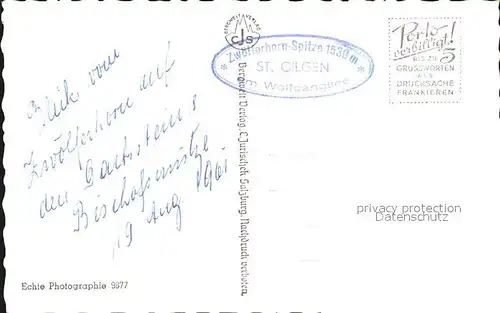 Blick vom
Zwölferhorn auf
den Dachstein &
Bischofsmütze
19 Aug 1961
Echte Photographie 9877
BERGWELT VERLAG
CJS
Bergwelt Verlag, C. Jurischek Salzburg, Nachdruck verboten.
* Zwölferhorn-Spitze 1530 m *
ST. GILGEN
am Wolfgangsee
Porto
verbilligt!
BIS ZU 5
GRUSSWORTEN
ALS
DRUCKSACHE
FRANKIEREN
privacy protection
Datenschutz